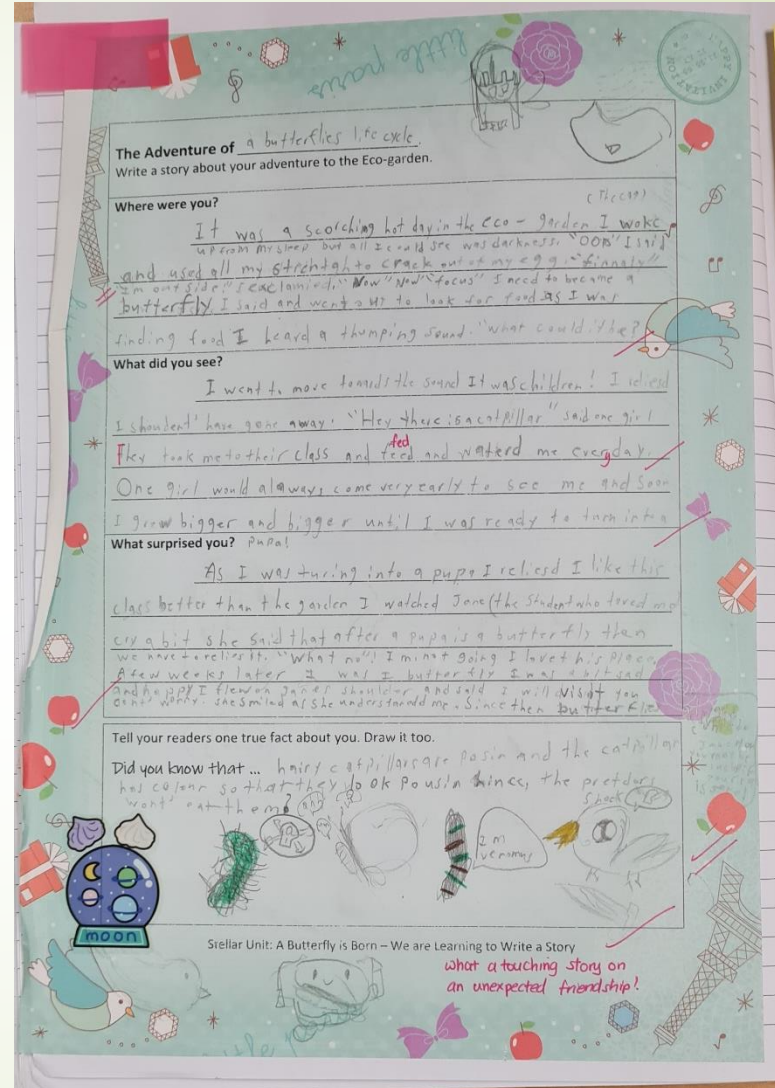 little paris
HAPPY INVITATION
The Adventure of a butterflies life cycle.
Write a story about your adventure to the Eco-garden.
Where were you?
(The egg)
It was a scorching hot day in the eco - garden I woke
up from my sleep but all I could see was darkness. "OOB" I said
and used all my strehtgh to crack out of my egg. "finnaly"
"I'm outside" I exclamied. "Now" "Now" "focus" I need to became a
butterfly. I said and went out to look for food as I was
finding food I heard a thumping sound. "what could it be?
What did you see?
I went to move towards the sound It was children! I reliesd
I shouldent' have gone away. "Hey there is a catpillar" said one girl
They took me to their class and feed and waterd me everyday.
fed
One girl would always come very early to see me and soon
I grew bigger and bigger until I was ready to turn into a
What surprised you? Pupa!
As I was turing into a pupa I reliesd I like this
class better than the garden I watched Jane (the student who loved me)
cry a bit she said that after a pupa is a butterfly then
we have to relies it. "What no"! I'm not going I love this place.
A few weeks later I was I butterfly I was a bit sad
and happy I flew on janes shoulder and said I will visit you
dont' worry. she smiled as she understand me. Since then butterflie
Tell your readers one true fact about you. Draw it too.
Did you know that ... hairy catpillars are posin and the catpillar
has colour so that they look pousin hince, the pretdors
wont' eat them?
I m
venomus
moon
Stellar Unit: A Butterfly is Born – We are Learning to Write a Story
what a touching story on
an unexpected friendship!